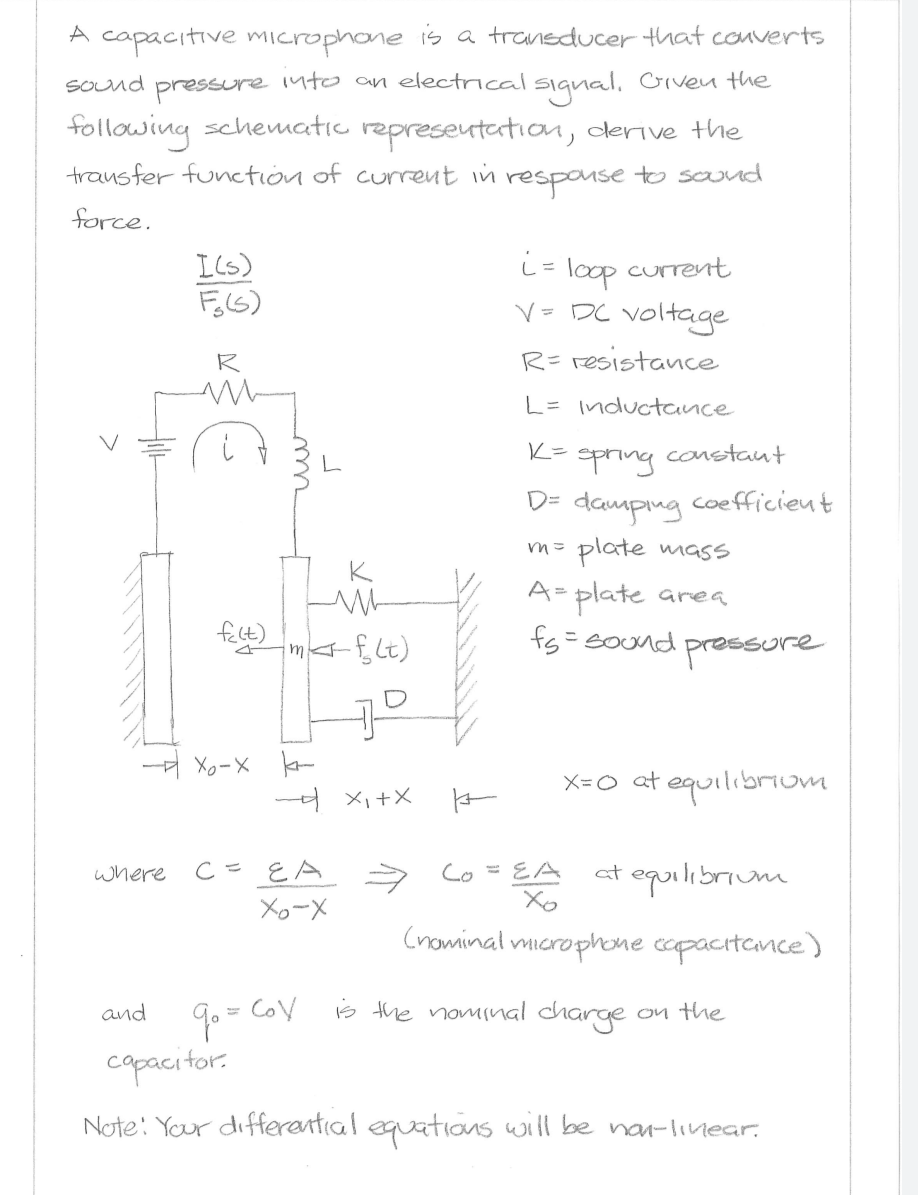 A capacitive microphone is a transducer that converts
sound pressure into an electrical signal. Given the
following schematic representation, derive the
transfer function of current in response to sound
force.
I(s)
Fₛ(s)
i = loop current
V = DC voltage
R = resistance
L = inductance
K = spring constant
D = damping coefficient
m = plate mass
A = plate area
fₛ = sound pressure
R
V
i
L
K
f꜀(t)
m
fₛ(t)
D
X₀-X
X₁+X
X=0 at equilibrium
where C = εA / X₀-X ⇒ C₀ = εA / X₀ at equilibrium
(nominal microphone capacitance)
and q₀ = C₀V is the nominal charge on the
capacitor.
Note: Your differential equations will be non-linear.